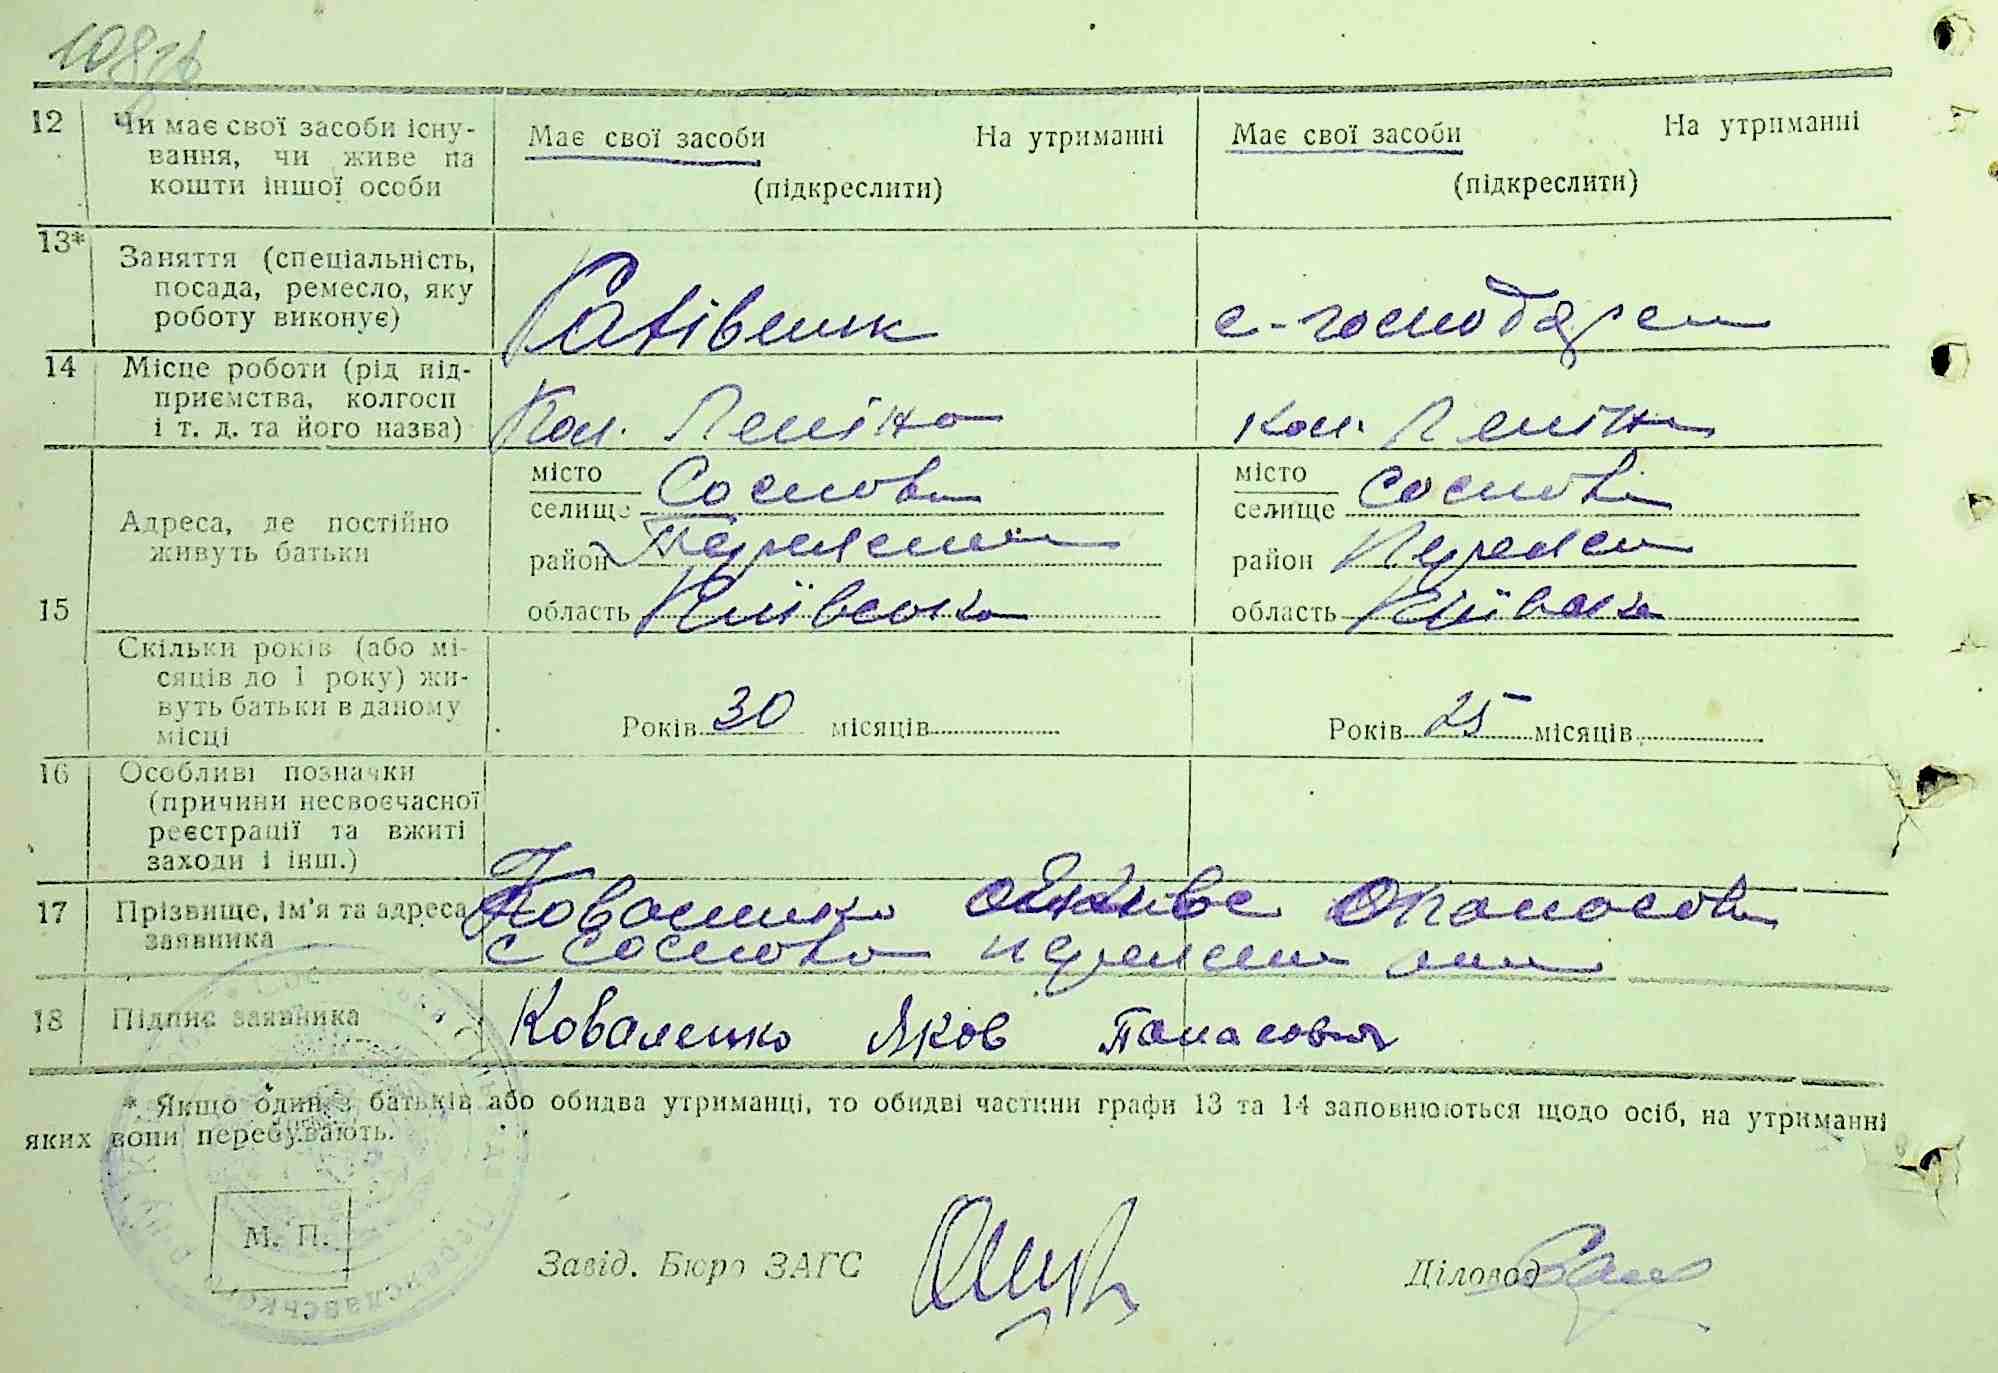 12 Чи має свої засоби існу-
вання, чи живе на
кошти іншої особи
Має свої засоби На утриманні
(підкреслити)
Має свої засоби На утриманні
(підкреслити)
13* Заняття (спеціальність,
посада, ремесло, яку
роботу виконує)
14 Місце роботи (рід під-
приємства, колгосп
і т. д. та його назва)
Кол. Леніна
кол. Леніна
15 Адреса, де постійно
живуть батьки
місто
селище Соснова
район
область Київська
місто
селище Соснові
район
область Київська
Скільки років (або мі-
сяців до 1 року) жи-
вуть батьки в даному
місці
Років 30 місяців
Років 25 місяців
16 Особливі позначки
(причини несвоєчасної
реєстрації та вжиті
заходи і інш.)
17 Прізвище, ім'я та адреса
заявника
Коваленко
с Соснова
18 Підпис заявника
Коваленко Яков Панасович
* Якщо один з батьків або обидва утриманці, то обидві частини графи 13 та 14 заповнюються щодо осіб, на утриманні
яких вони перебувають.
М. П.
Завід. Бюро ЗАГС
Діловод